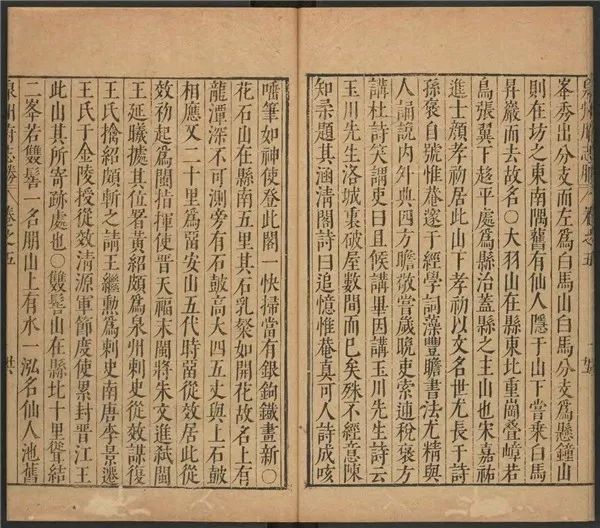 峯秀出分支而左爲白馬山白馬分支爲懸鐘山
則在坊之東南隅舊有仙人隱于山下嘗乘白馬
昇巖而去故名○大羽山在縣東北重崗叠嶂若
鳥張翼下趍平處爲縣治蓋縣之主山也宋嘉祐
進士顔孝初居此山下孝初以文名世尤長于詩
孫褒自號惟菴邃于經學詞藻豐贍書法尤精與
人誦說内外典四方瞻敬當歲晩吏索逋稅褒方
講杜詩笑謂吏曰且候講畢因講玉川先生詩云
玉川先生洛城裏破屋數間而已矣殊不經意陳
知柔題其涵清閣詩曰追憶惟菴真可人詩成咳
唾筆如神使登此閣一快掃當有銀鉤鐵畫新○
花石山在縣南五里其石乳粲如開花故名上有
龍潭深不可測旁有石鼓高大四五丈與上石鼓
相應又二十里爲留安山五代時留從效居此從
效初起爲閩指揮使晉天福末閩將朱文進弑閩
王延曦據其位署黃紹頗爲泉州刺史從效謀復
王氏擒紹頗斬之請王繼勲爲刺史南唐李景遷
王氏于金陵授從效清源軍節度使累封晉江王
此山其所寄跡處也○雙髻山在縣北十里聳結
二峯若雙髻一名朋山上有水一泓名仙人池舊
泉州府志勝 卷之五